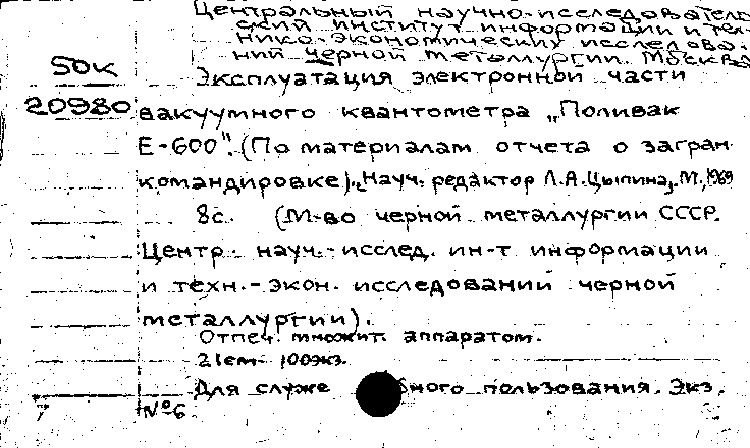 Центральный научно-исследователь
ский институт информации и тех-
нико-экономических исследова-
ний черной металлургии. Москва
50к
Эксплуатация электронной части
20980
вакуумного квантометра „Поливак
Е-600". (По материалам отчета о загран.
командировке). Науч. редактор Л.А.Цыпина. М., 1969
8с. (М-во черной металлургии СССР.
Центр. науч.-исслед. ин-т информации
и техн.-экон. исследований черной
металлургии).
Отпеч. множит. аппаратом.
21см. 100экз.
Для служе бного пользования. Экз.
№6.